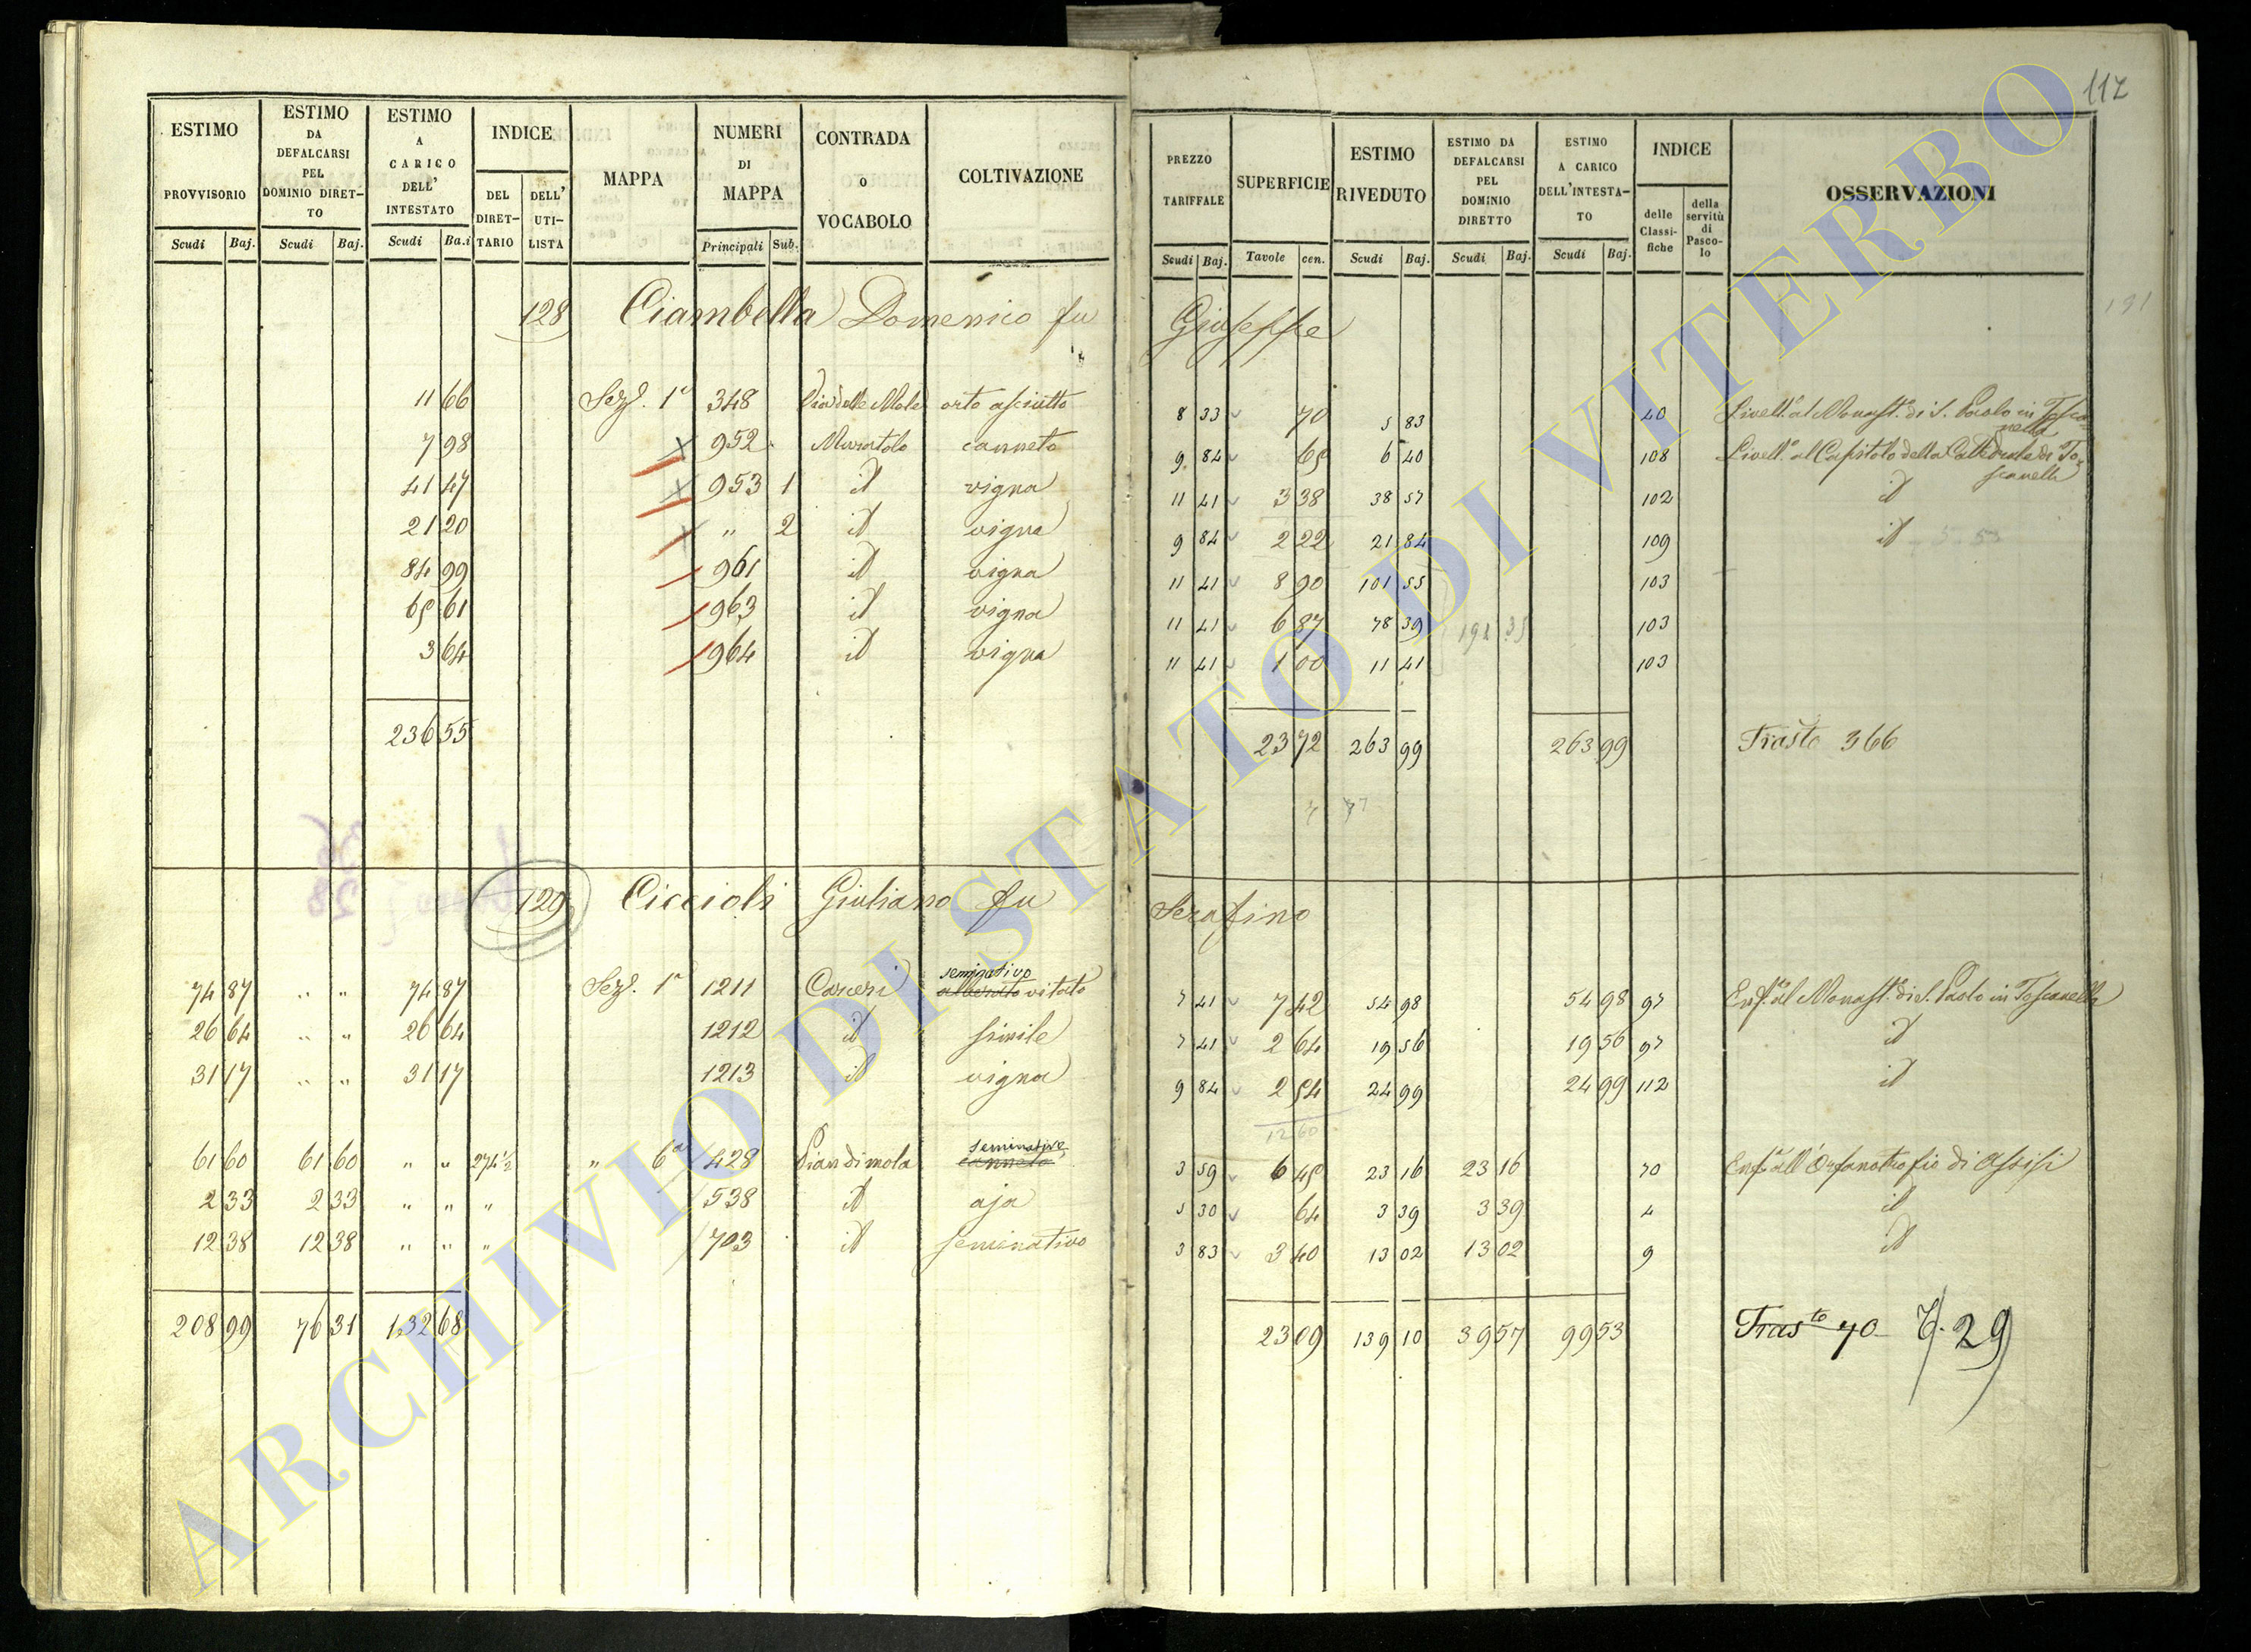 117
ESTIMO PROVVISORIO Scudi Baj.
ESTIMO DA DEFALCARSI PEL DOMINIO DIRETTO Scudi Baj.
ESTIMO A CARICO DELL' INTESTATO Scudi Ba.i
INDICE DEL DIRETTARIO DELL' UTILISTA
MAPPA
NUMERI DI MAPPA Principali Sub.
CONTRADA O VOCABOLO
COLTIVAZIONE
PREZZO TARIFFALE Scudi Baj.
SUPERFICIE Tavole cen.
ESTIMO RIVEDUTO Scudi Baj.
ESTIMO DA DEFALCARSI PEL DOMINIO DIRETTO Scudi Baj.
ESTIMO A CARICO DELL'INTESTATO Scudi Baj.
INDICE delle Classifiche della servitù di Pascolo
OSSERVAZIONI
128 Ciambella Domenico fu Giuseppe
191
11 66 Sez. 1a 348 Via delle Mole orto asciutto 8 33 70 5 83 40 Livell.o al Monast.o di S. Paolo in Toscanella
7 98 952 Muratolo canneto 9 84 65 6 40 108 Livell.o al Capitolo della Cattedrale di Toscanella
41 47 953 1 id vigna 11 41 3 38 38 57 102 id
21 20 " 2 id vigna 9 84 2 22 21 84 109 id
84 99 961 id vigna 11 41 8 90 101 55 103
65 61 963 id vigna 11 41 6 87 78 39 103
3 64 964 id vigna 11 41 1 00 11 41 103
236 55 23 72 263 99 263 99 Trasto 366
129 Ciccioli Giuliano fu Serafino
74 87 " " 74 87 Sez. 1a 1211 Carceri seminativo alberato vitato 7 41 7 42 54 98 54 98 97 Enf.a al Monast.o di S. Paolo in Toscanella
26 64 " " 26 64 1212 id simile 7 41 2 64 19 56 19 56 97 id
31 17 " " 31 17 1213 id vigna 9 84 2 54 24 99 24 99 112 id
12 60
61 60 61 60 " " 274 1/2 " 6a 428 Piandimola seminativo canneto 3 59 6 45 23 16 23 16 70 Enf.a all'Orfanotrofio di Assisi
2 33 2 33 " " " 538 id aja 5 30 64 3 39 3 39 4 id
12 38 12 38 " " " 703 id seminativo 3 83 3 40 13 02 13 02 9 id
208 99 76 31 132 68 23 09 139 10 39 57 99 53 Tras.to 70 29
ARCHIVIO DI STATO DI VITERBO